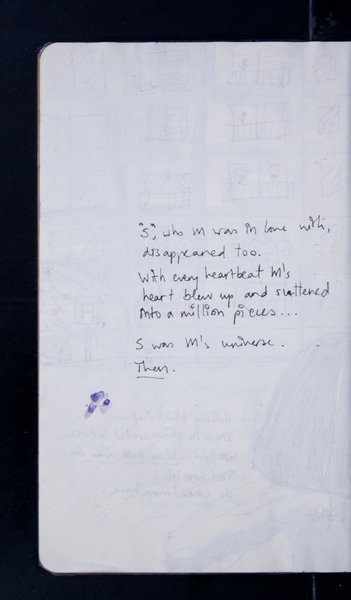 "S", who M was in love with,
disappeared too.
With every heartbeat M's
heart blew up and scattered
into a million pieces...
S was M's universe.
Then.